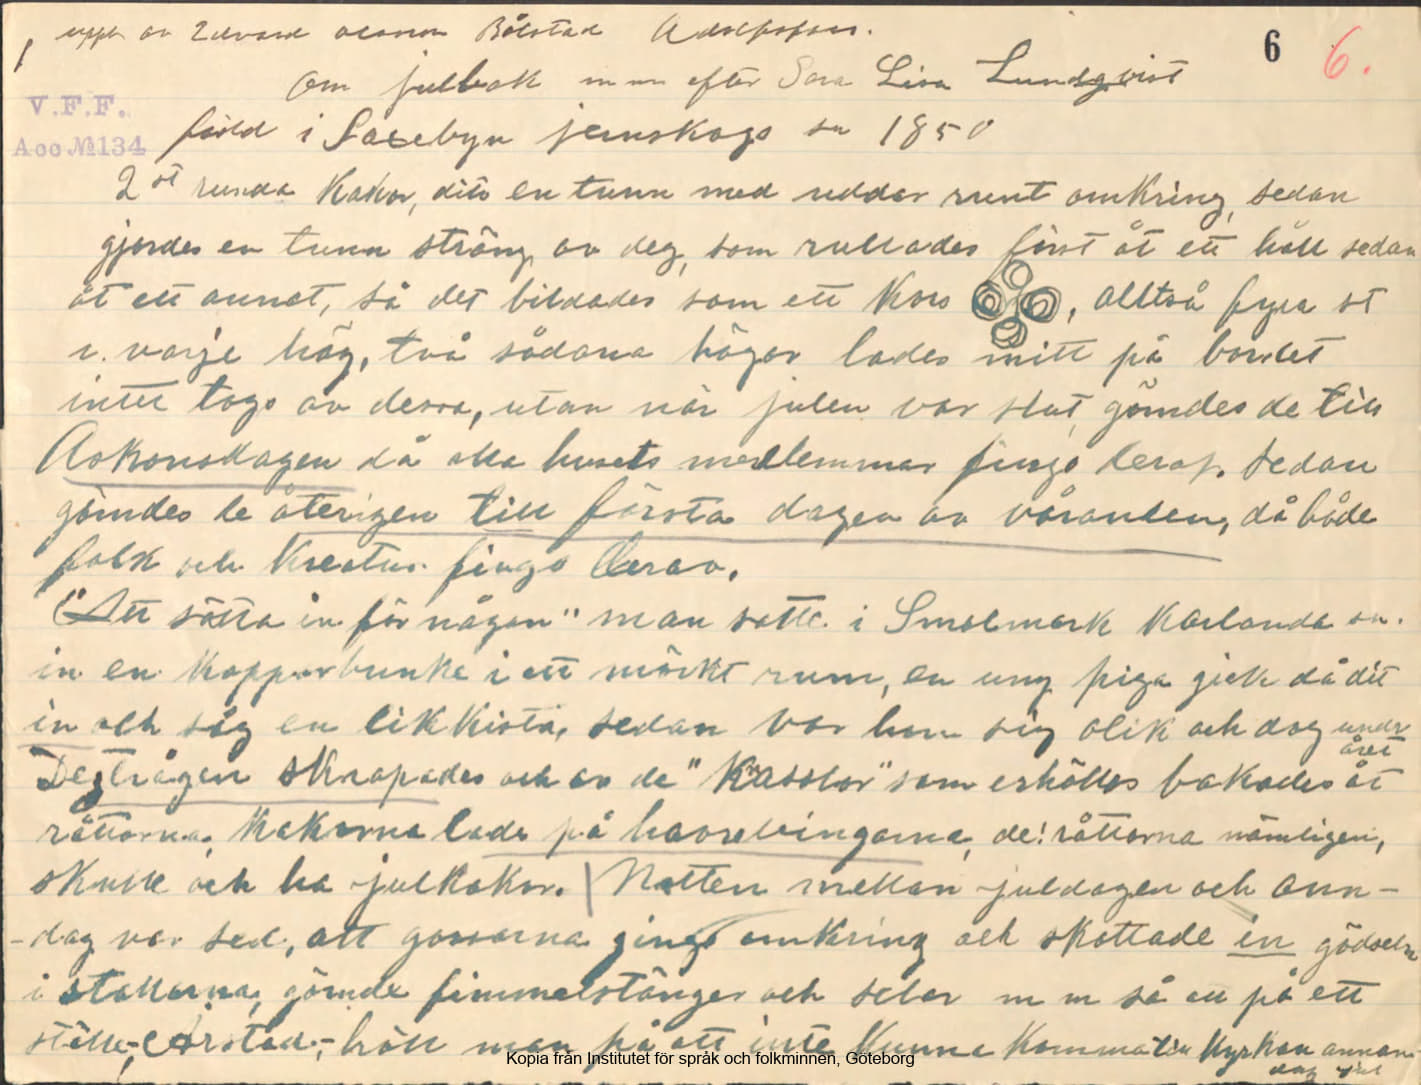 uppt av Edvard Olsson Bålstad Adolfsfors.
6 6.
Om julbak m m efter Sara Lisa Lundqvist
V.F.F.
född i Saxebyn jernskogs sn 1850
Acc № 134
2 st runda Kakor, dito en tunn med uddar runt omkring, sedan
gjordes en tunn sträng av deg, som rullades först åt ett håll sedan
åt ett annat, så det bildades som ett Kors , alltså fyra st
i varje hög, två sådana högar lades mitt på bordet
intet togs av dessa, utan när julen var slut gömdes de till
Askonsdagen då alla husets medlemmar fingo derap. Sedan
gömdes de återigen till första dagen av våranden, då både
folk och Kreatur fingo derav.
"Att sätta in för någon" man satte i Smolmark Karlanda sn.
in en Kopparbunke i ett mörkt rum, en ung piga gick då dit
in och såg en likkista, sedan var hon sig olik och dog under
året
Degtrågen skrapades och av de "Krasslor" som erhölls bakades åt
råttorna, Kakorna lades på havrebingarna, de! råttorna nämligen,
skulle och ha julkakor. | Natten mellan juldagen och ann-
-dag var sed, att gossarna gingo omkring och skottade in gödseln
i stallarna, gömde fimmelstänger och selar m m så att på ett
ställe, -, höll man på att inte Kunna Komma till Kyrkan annan
dag jul
Kopia från Institutet för språk och folkminnen, Göteborg